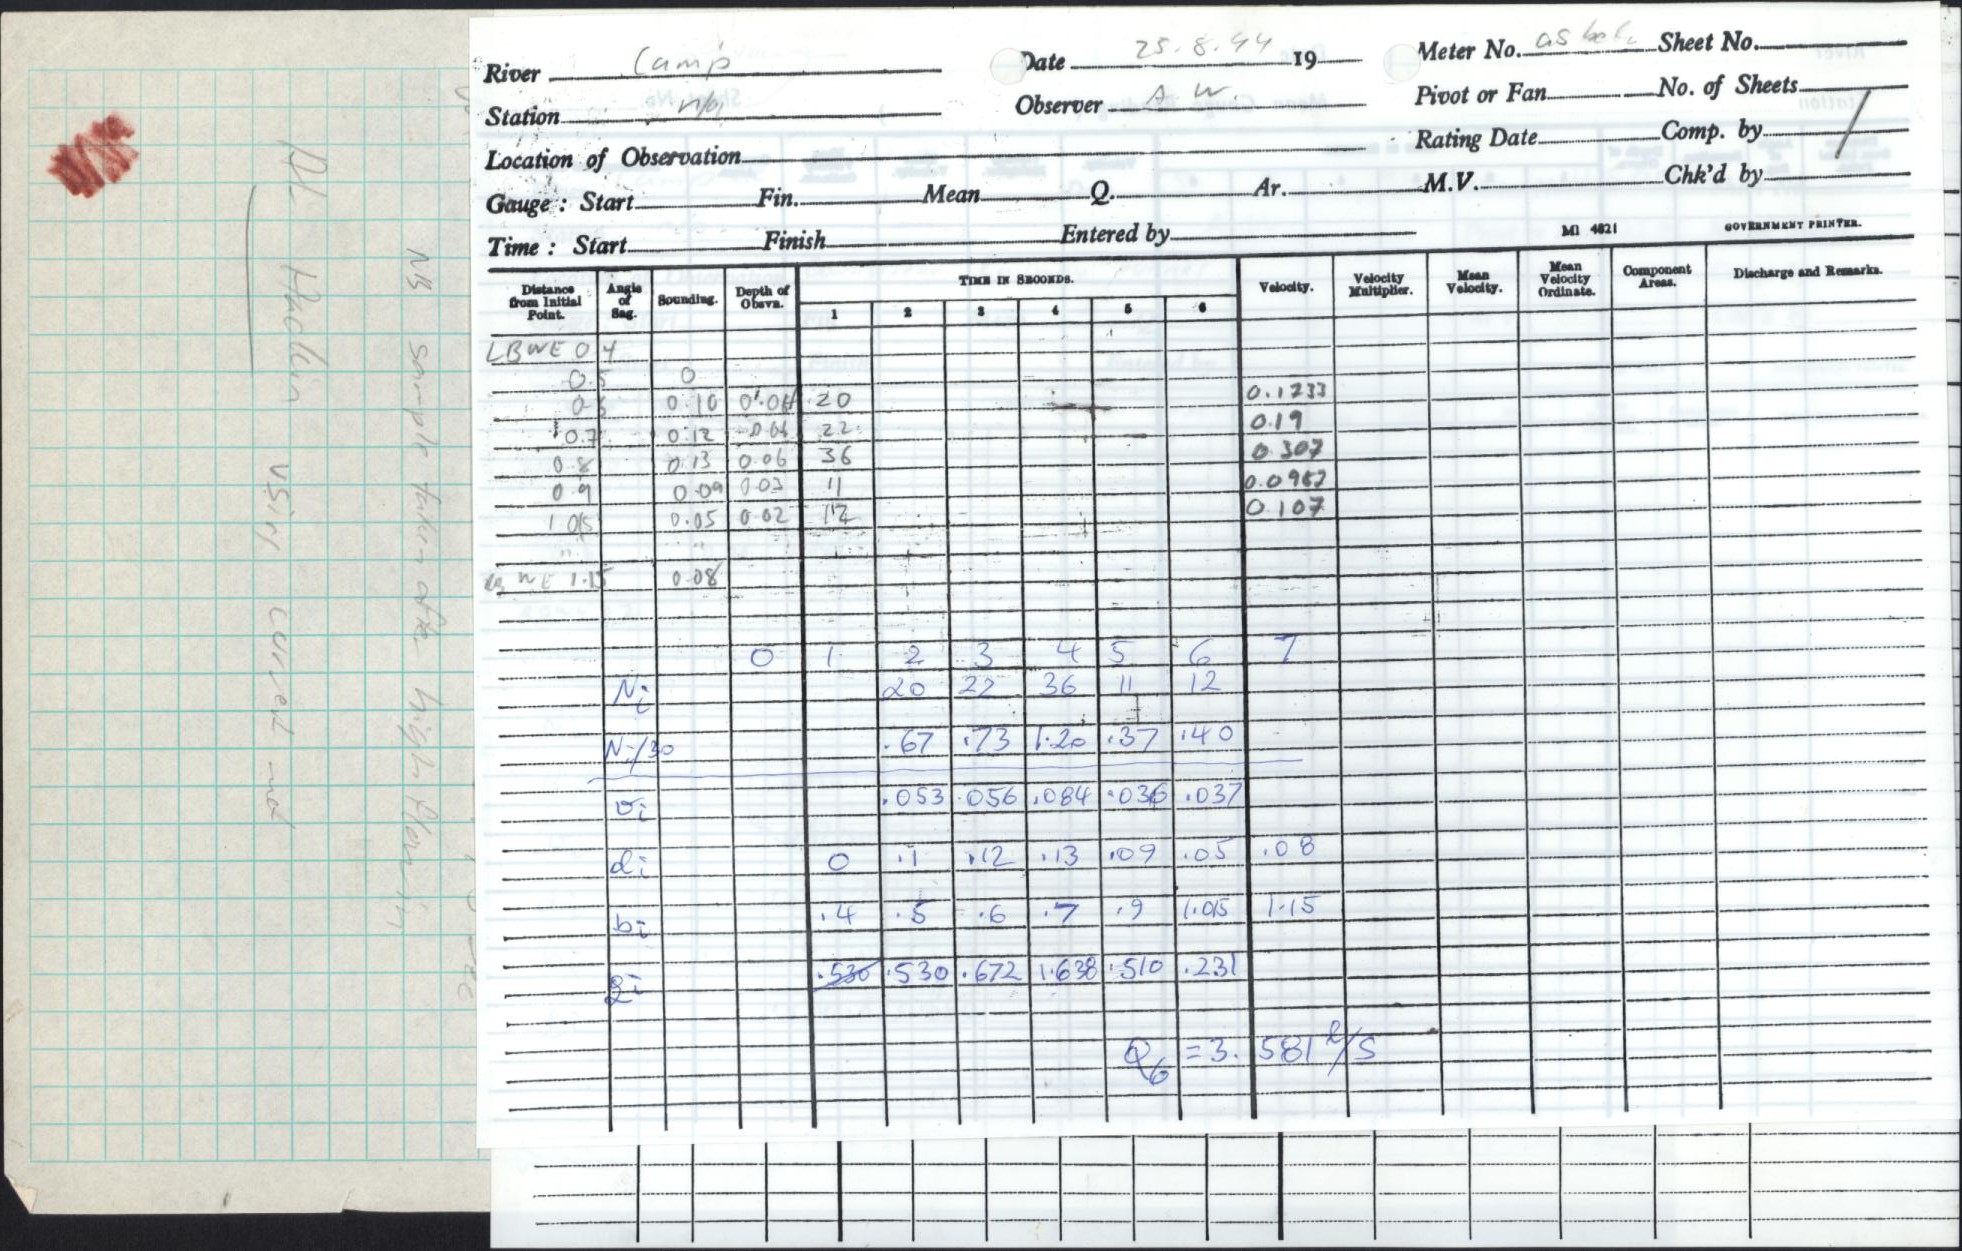 River Camp Date 25.8.44 19 Meter No. as bef. Sheet No.
Station n/a Observer A W. Pivot or Fan No. of Sheets
Location of Observation Rating Date Comp. by
Gauge : Start Fin. Mean Q. Ar. M.V. Chk'd by
Time : Start Finish Entered by MI 4821 GOVERNMENT PRINTER.
Distance from Initial Point. Angle of Sag. Sounding. Depth of Obsvn. TIME IN SECONDS. Velocity. Velocity Multiplier. Mean Velocity. Mean Velocity Ordinate. Component Areas. Discharge and Remarks.
1 2 3 4 5 6
LBWE 0 4
0.5 0
0.6 0.10 0.04 20 0.1233
0.7 0.12 0.06 22 0.19
0.8 0.13 0.06 36 0.307
0.9 0.09 0.03 11 0.0967
1.05 0.05 0.02 12 0.107
WE 1.15 0.08
0 1 2 3 4 5 6 7
Ni 20 22 36 11 12
Ni/30 .67 .73 1.20 .37 .40
vi .053 .056 .084 .036 .037
di 0 .1 .12 .13 .09 .05 .08
bi .4 .5 .6 .7 .9 1.015 1.15
qi .530 .530 .672 1.638 .510 .231
Q6 = 3.581 l/s
NB sample taken after high flow in
using curved